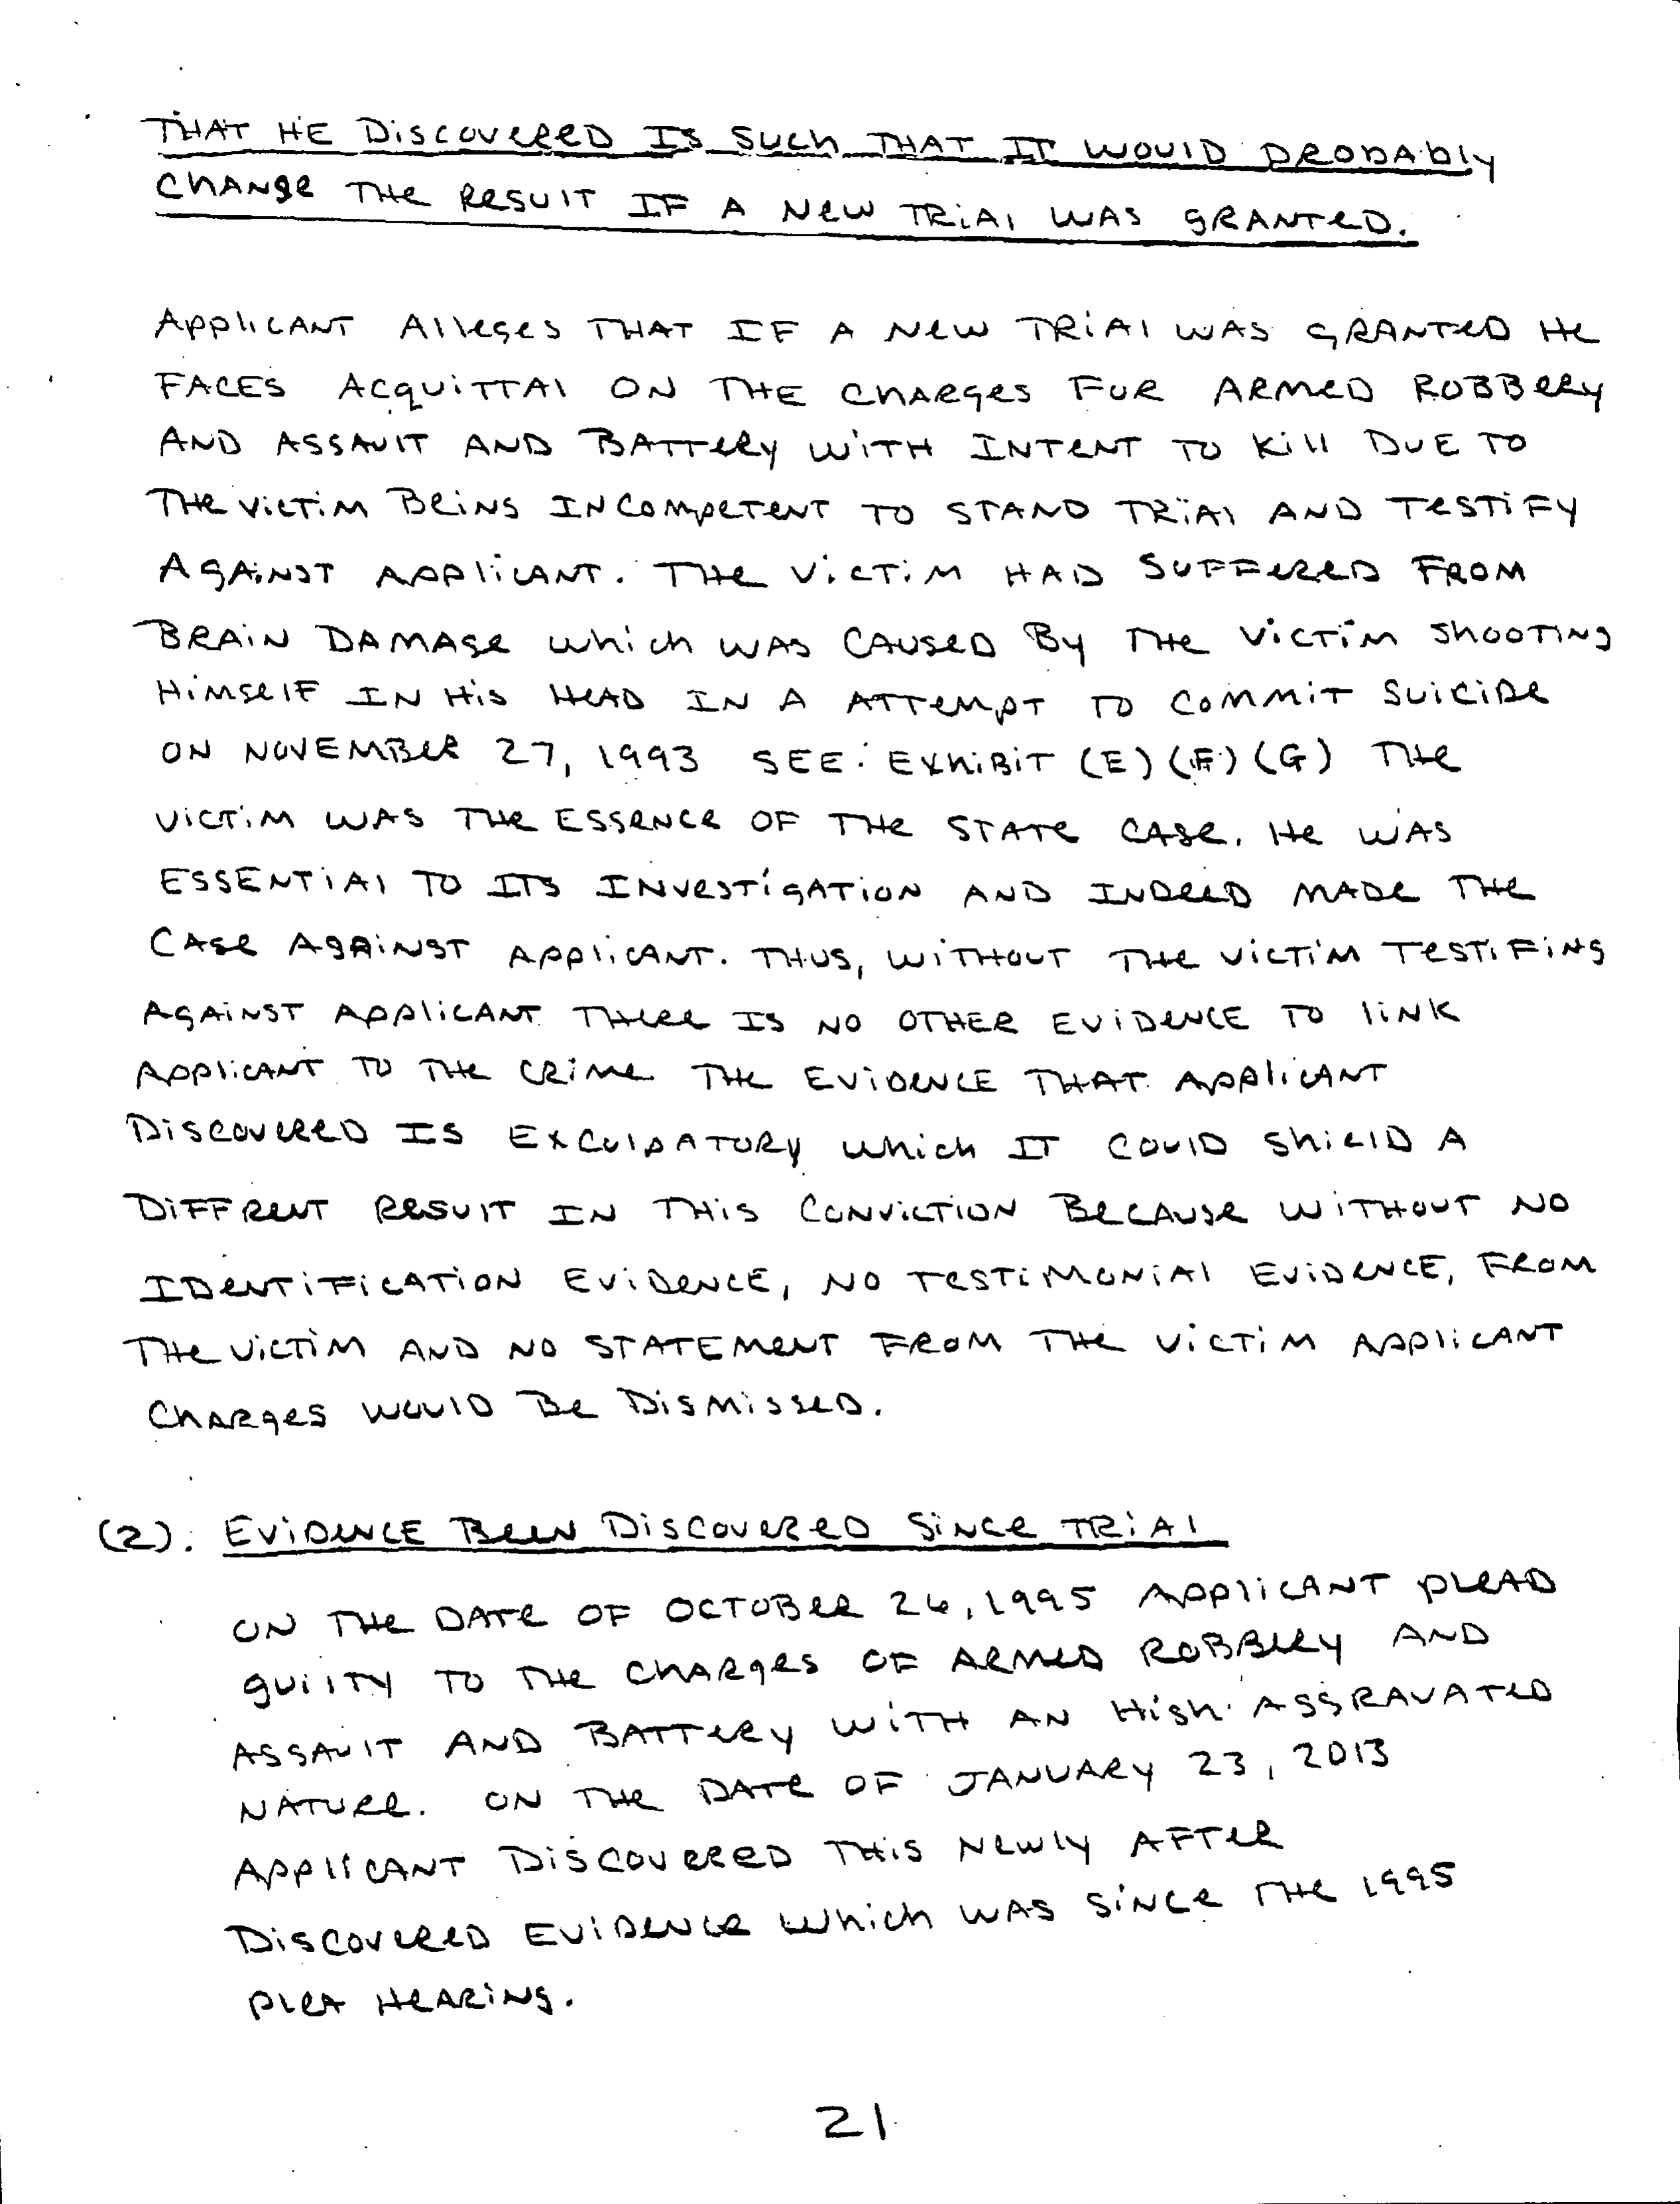 THAT HE DISCOVERED IS SUCH THAT IT WOULD PROBABLY
CHANGE THE RESULT IF A NEW TRIAL WAS GRANTED.
APPLICANT ALLEGES THAT IF A NEW TRIAL WAS GRANTED HE
FACES ACQUITTAL ON THE CHARGES FOR ARMED ROBBERY
AND ASSAULT AND BATTERY WITH INTENT TO KILL DUE TO
THE VICTIM BEING INCOMPETENT TO STAND TRIAL AND TESTIFY
AGAINST APPLICANT. THE VICTIM HAD SUFFERED FROM
BRAIN DAMAGE WHICH WAS CAUSED BY THE VICTIM SHOOTING
HIMSELF IN HIS HEAD IN A ATTEMPT TO COMMIT SUICIDE
ON NOVEMBER 27, 1993 SEE: EXHIBIT (E) (F) (G) THE
VICTIM WAS THE ESSENCE OF THE STATE CASE. HE WAS
ESSENTIAL TO ITS INVESTIGATION AND INDEED MADE THE
CASE AGAINST APPLICANT. THUS, WITHOUT THE VICTIM TESTIFING
AGAINST APPLICANT THERE IS NO OTHER EVIDENCE TO LINK
APPLICANT TO THE CRIME THE EVIDENCE THAT APPLICANT
DISCOVERED IS EXCULPATORY WHICH IT COULD SHIELD A
DIFFRENT RESULT IN THIS CONVICTION BECAUSE WITHOUT NO
IDENTIFICATION EVIDENCE, NO TESTIMONIAL EVIDENCE, FROM
THE VICTIM AND NO STATEMENT FROM THE VICTIM APPLICANT
CHARGES WOULD BE DISMISSED.
(2). EVIDENCE BEEN DISCOVERED SINCE TRIAL
ON THE DATE OF OCTOBER 26, 1995 APPLICANT PLEAD
GUILTY TO THE CHARGES OF ARMED ROBBERY AND
ASSAULT AND BATTERY WITH AN HIGH AGGRAVATED
NATURE. ON THE DATE OF JANUARY 23, 2013
APPLICANT DISCOVERED THIS NEWLY AFTER
DISCOVERED EVIDENCE WHICH WAS SINCE THE 1995
PLEA HEARING.
21